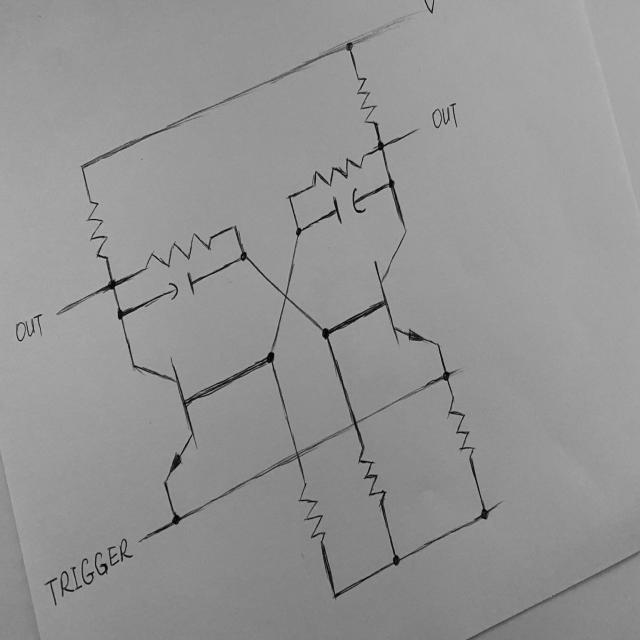 V
OUT
OUT
TRIGGER